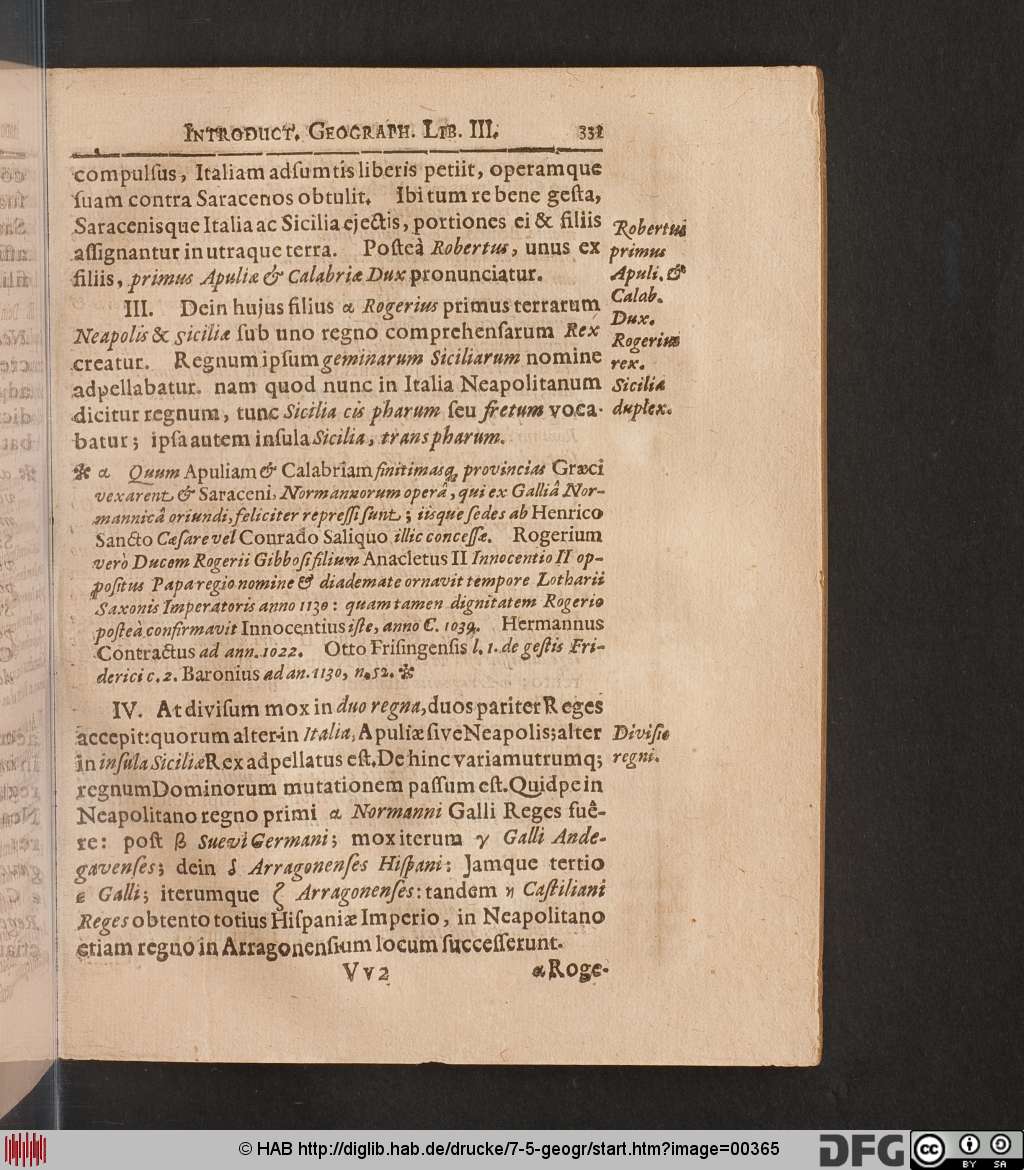 INTRODUCT. GEOGRAPH. LIB. III. 331
compulſus, Italiam adſumtis liberis petiit, operamque
ſuam contra Saracenos obtulit. Ibi tum re bene geſta,
Saracenisque Italia ac Sicilia ejectis, portiones ei & filiis
aſſignantur in utraque terra. Poſteà Robertus, unus ex
filiis, primus Apuliæ & Calabriæ Dux pronunciatur.
Robertus
primus
Apuli. &
Calab.
Dux.
III. Dein hujus filius α Rogerius primus terrarum
Neapolis & Siciliæ ſub uno regno comprehenſarum Rex
creatur. Regnum ipſum geminarum Siciliarum nomine
adpellabatur. nam quod nunc in Italia Neapolitanum
dicitur regnum, tunc Sicilia cis pharum ſeu fretum voca-
batur; ipſa autem inſula Sicilia, trans pharum.
Rogerius
rex.
Sicilia
duplex.
✻ α Quum Apuliam & Calabriam finitimasq; provincias Græci
vexarent & Saraceni, Normannorum operâ, qui ex Galliâ Nor-
mannicâ oriundi, feliciter repreſſi ſunt; iisque ſedes ab Henrico
Sancto Cæſare vel Conrado Saliquo illic conceſſæ. Rogerium
verò Ducem Rogerii Gibboſi filium Anacletus II Innocentio II op-
poſitus Papa regio nomine & diademate ornavit tempore Lotharii
Saxonis Imperatoris anno 1130: quam tamen dignitatem Rogerio
poſteà confirmavit Innocentius iſte, anno C. 1039. Hermannus
Contractus ad ann. 1022. Otto Friſingenſis l. 1. de geſtis Fri-
derici c. 2. Baronius ad an. 1130, n. 52. ✻
IV. At diviſum mox in duo regna, duos pariter Reges
accepit: quorum alter in Italia, Apuliæ ſive Neapolis; alter
in inſula Siciliæ Rex adpellatus eſt. Dehinc variam utrumq;
regnum Dominorum mutationem paſſum eſt. Quidpe in
Neapolitano regno primi α Normanni Galli Reges fuê-
re: poſt β Suevi Germani; mox iterum γ Galli Ande-
gavenſes; dein δ Arragonenſes Hiſpani: Jamque tertio
ε Galli; iterumque ζ Arragonenſes: tandem η Caſtiliani
Reges obtento totius Hiſpaniæ Imperio, in Neapolitano
etiam regno in Arragonenſium locum ſucceſſerunt.
Diviſio
regni.
Vv2 α Roge-
© HAB http://diglib.hab.de/drucke/7-5-geogr/start.htm?image=00365
DFG
cc
BY SA